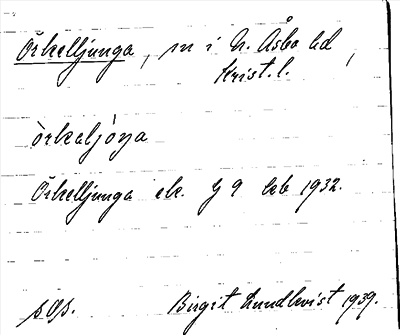 Örkelljunga, sn i N. Åsbo hd,
Krist. l.
òrkaljóŋa
Örkelljunga ek. bl 9 kbl 1932.
s. 0/s.
Birgit Lundkvist 1939.